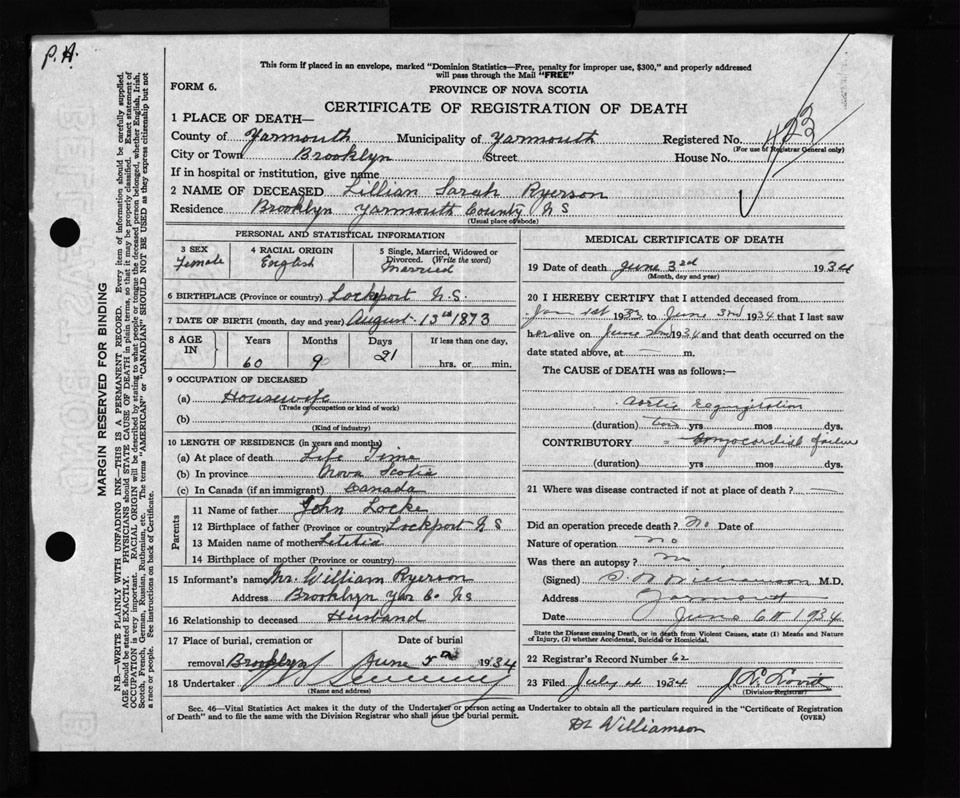 P.H.
This form if placed in an envelope, marked "Dominion Statistics—Free, penalty for improper use, $300," and properly addressed
will pass through the Mail "FREE"
FORM 6.
PROVINCE OF NOVA SCOTIA
CERTIFICATE OF REGISTRATION OF DEATH
1 PLACE OF DEATH—
County of Yarmouth Municipality of Yarmouth Registered No.
(For use of Registrar General only)
City or Town Brooklyn Street House No.
If in hospital or institution, give name
2 NAME OF DECEASED Lillian Sarah Ryerson
Residence Brooklyn Yarmouth County N S
(Usual place of abode)
PERSONAL AND STATISTICAL INFORMATION
3 SEX Female
4 RACIAL ORIGIN English
5 Single, Married, Widowed or Divorced. (Write the word) Married
6 BIRTHPLACE (Province or country) Lockeport N.S.
7 DATE OF BIRTH (month, day and year) August 13th 1873
8 AGE IN Years Months Days If less than one day,
60 9 21 hrs. or min.
9 OCCUPATION OF DECEASED
(a) Housewife
(Trade or occupation or kind of work)
(b)
(Kind of industry)
10 LENGTH OF RESIDENCE (in years and months)
(a) At place of death Life Time
(b) In province Nova Scotia
(c) In Canada (if an immigrant) Canada
Parents
11 Name of father John Locke
12 Birthplace of father (Province or country) Lockport N S
13 Maiden name of mother Letetia
14 Birthplace of mother (Province or country)
15 Informant's name Mr. William Ryerson
Address Brooklyn Yar Co. NS
16 Relationship to deceased Husband
17 Place of burial, cremation or Date of burial
removal Brooklyn June 5 1934
18 Undertaker
(Name and address)
MEDICAL CERTIFICATE OF DEATH
19 Date of death June 3rd 1934
(Month, day and year)
20 I HEREBY CERTIFY that I attended deceased from
Jan 1st 193 to June 3rd 1934 that I last saw
her alive on June 2nd 1934 and that death occurred on the
date stated above, at m.
The CAUSE of DEATH was as follows:—
Aortic regurgitation
(duration) yrs mos dys.
CONTRIBUTORY myocardial failure
(duration) yrs mos dys.
21 Where was disease contracted if not at place of death?
Did an operation precede death? No Date of
Nature of operation no
Was there an autopsy? no
(Signed) Williamson M.D.
Address Yarmouth
Date June 6th 1934
State the Disease causing Death, or in death from Violent Causes, state (1) Means and Nature
of Injury, (2) whether Accidental, Suicidal or Homicidal.
22 Registrar's Record Number 62
23 Filed July 4 1934
(Division Registrar)
Sec. 46—Vital Statistics Act makes it the duty of the Undertaker or person acting as Undertaker to obtain all the particulars required in the "Certificate of Registration
of Death" and to file the same with the Division Registrar who shall issue the burial permit. (OVER)
Dr Williamson
MARGIN RESERVED FOR BINDING
N.B.—WRITE PLAINLY WITH UNFADING INK—THIS IS A PERMANENT RECORD. Every item of information should be carefully supplied.
AGE should be stated EXACTLY. PHYSICIANS should STATE CAUSE OF DEATH in plain terms, so that it may be properly classified. Exact statement of
OCCUPATION is very important. RACIAL ORIGIN will be described by stating to what people or tongue the deceased person belonged, whether English, Irish,
Scotch, French, German, Russian, Ruthenian, etc. The terms "AMERICAN" or "CANADIAN" SHOULD NOT BE USED as they express citizenship but not
a race or people. See instructions on back of Certificate.